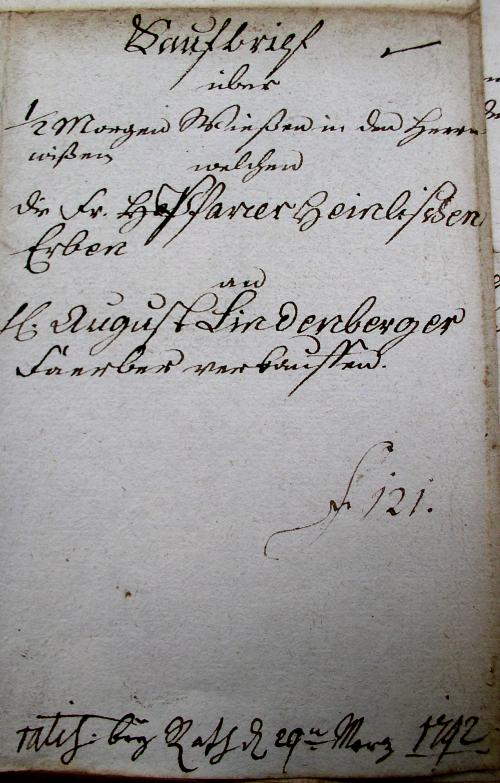 Kaufbrief
über
1/2 Morgen Wiesen in den Herrn-
wisen
welchen
die Fr. Pfarrer Heinlischen
Erben
an
H. August Lindenberger
Faerber verkauffen.
f. 121.
ratif. bey Rath d 29n Merz 1792